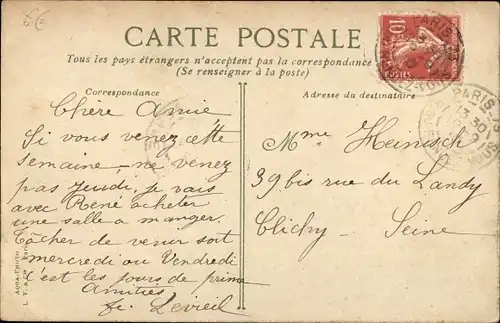 CARTE POSTALE
Tous les pays étrangers n'acceptent pas la correspondance
(Se renseigner à la poste)
Correspondance
Adresse du destinataire
Chère Amie
Si vous venez cette
semaine, ne venez
pas Jeudi, je vais
avec René acheter
une salle a manger.
Tâcher de venir soit
mercredi ou Vendredi
c'est les jours de prime
Amitiés
Mme Heinisch
39 bis rue du Landy
Clichy - Seine
10
POSTES
PARIS
PARIS
13 30